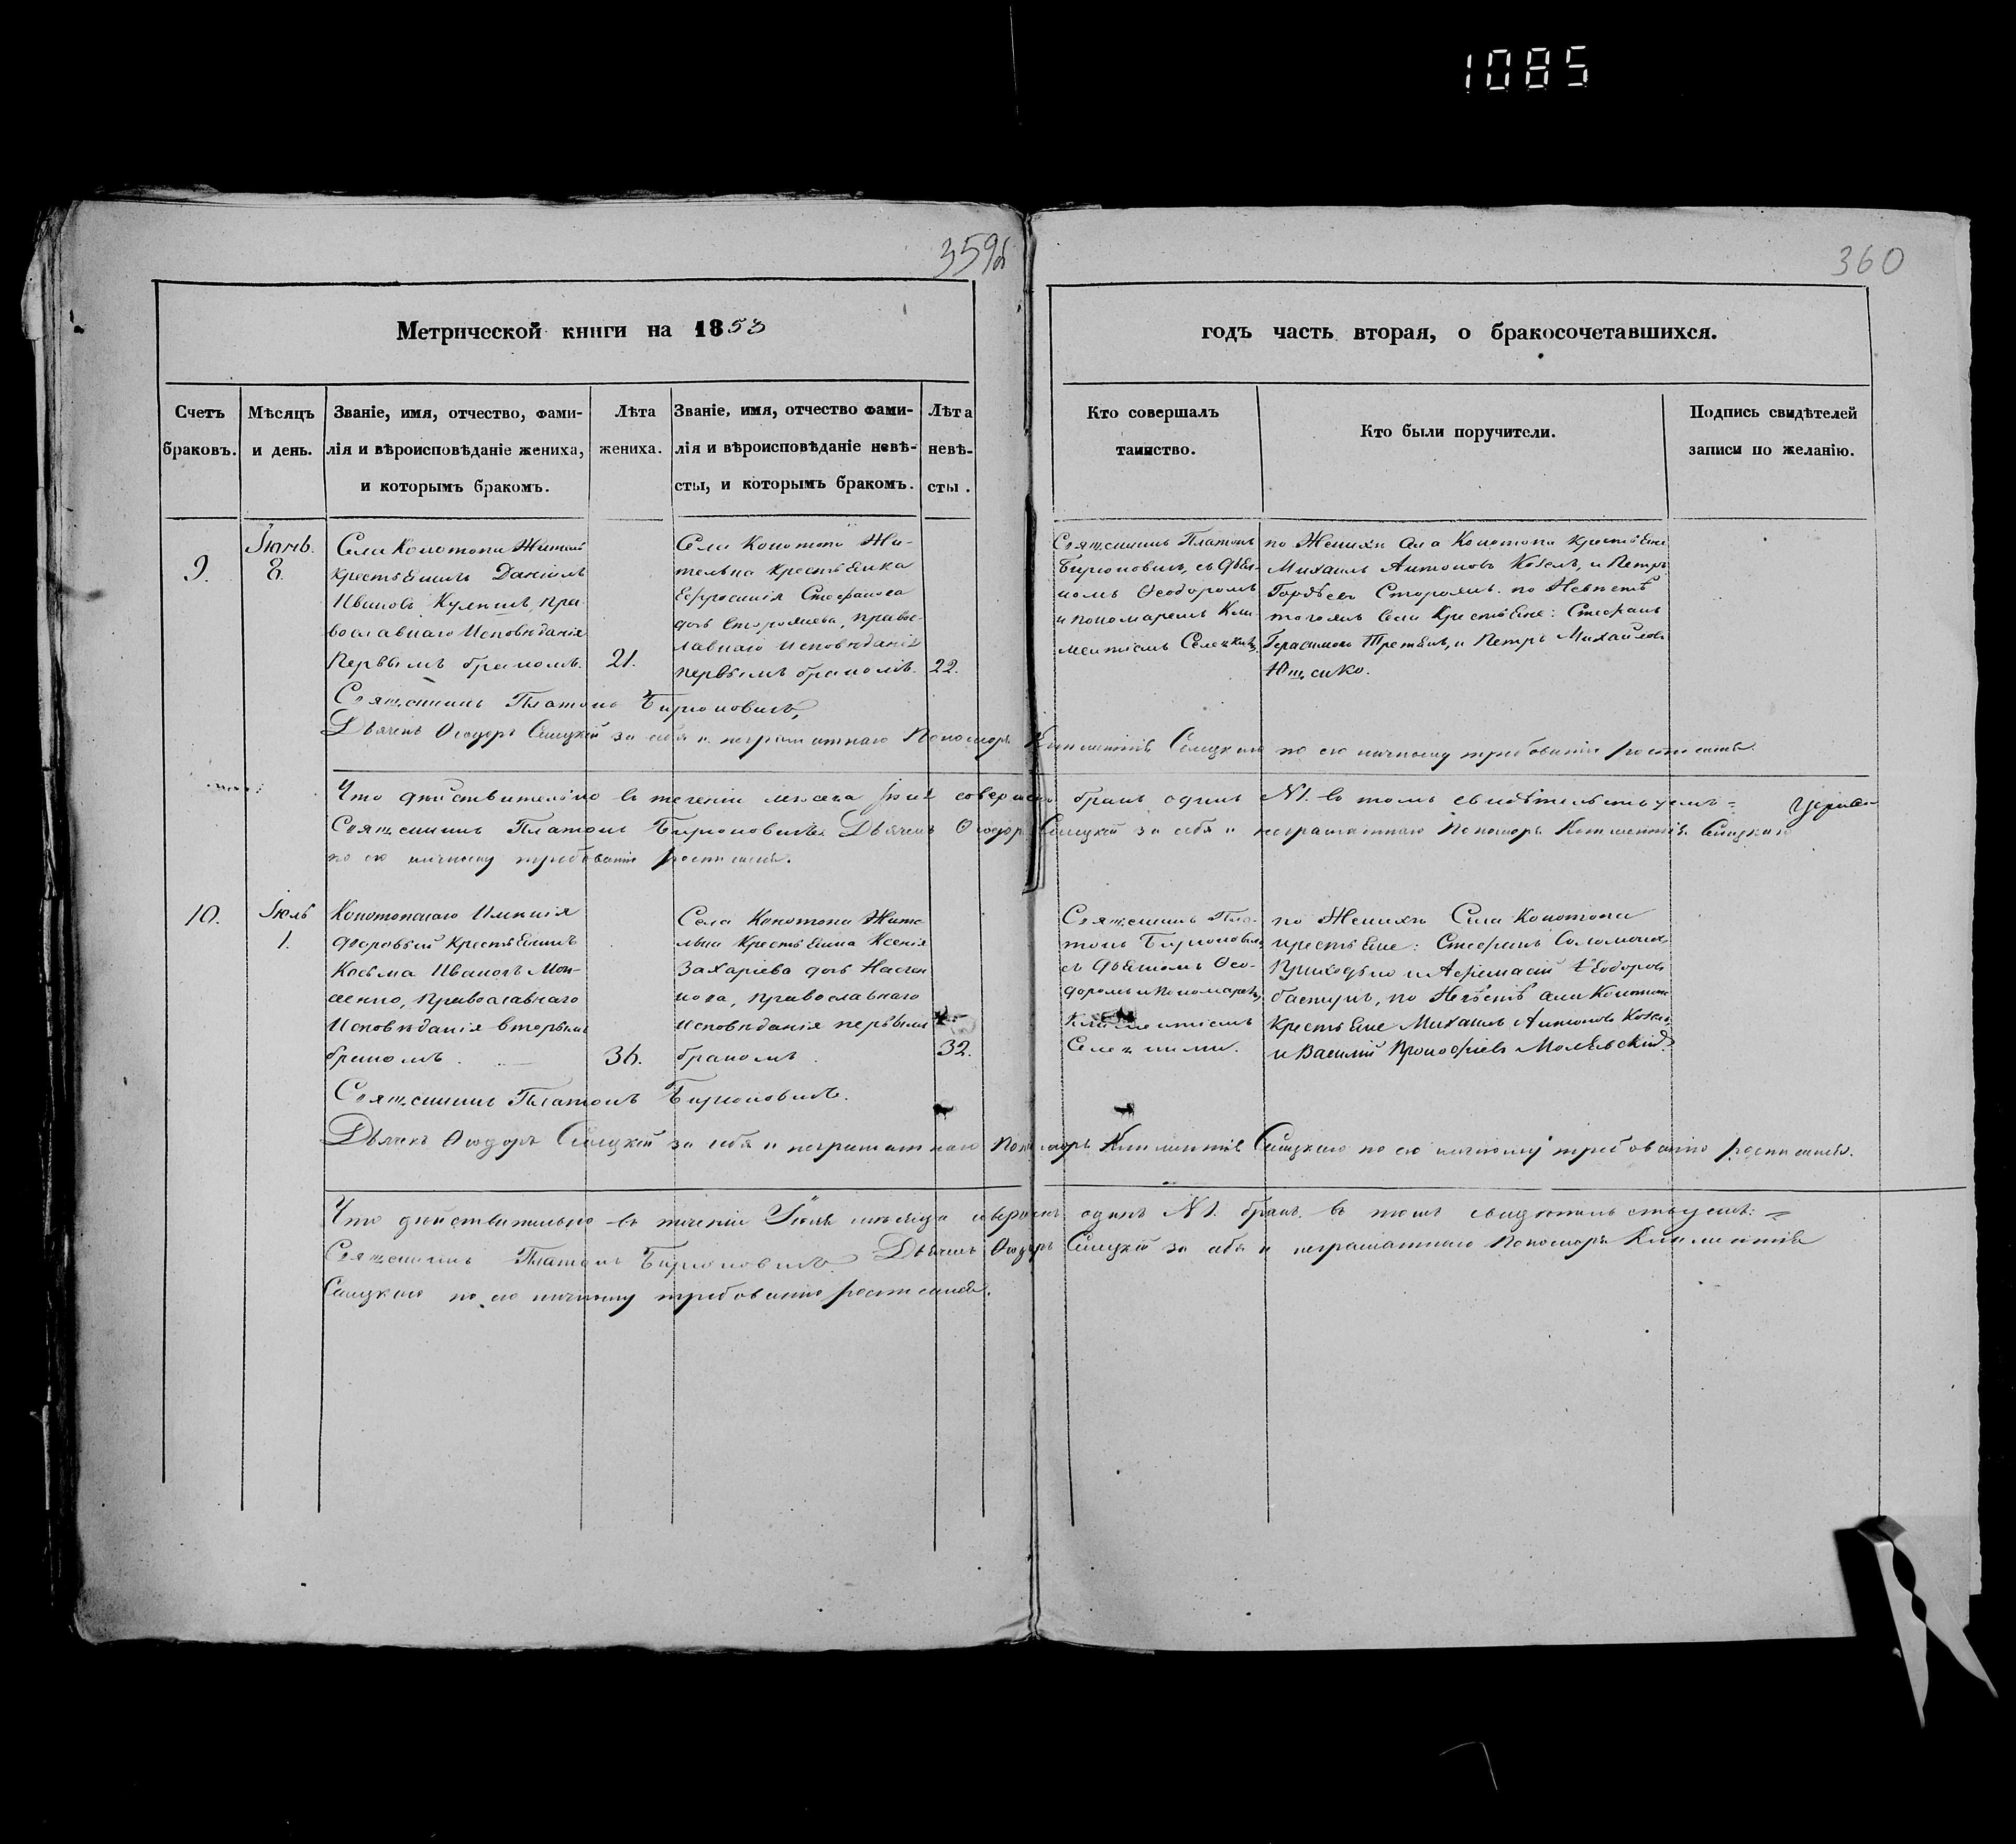 1085
359б
360
Метрической книги на 1853
годъ часть вторая, о бракосочетавшихся.
Счетъ
браковъ.
Мѣсяцъ
и день.
Званіе, имя, отчество, фами-
лія и вѣроисповѣданіе жениха,
и которымъ бракомъ.
Лѣта
жениха.
Званіе, имя, отчество фами-
лія и вѣроисповѣданіе невѣ-
сты, и которымъ бракомъ.
Лѣта
невѣ-
сты.
Кто совершалъ
таинство.
Кто были поручители.
Подпись свидѣтелей
записи по желанію.
9.
Іюнь.
8.
Села Конотопа Житель
Крестьянинъ Даніилъ
Ивановъ пра
вославнаго Исповѣданія
первымъ бракомъ.
21.
Села Конотопа Жи-
телька Крестьянка
Евфросинія Стефанова
дочь Сторожева, право-
славнаго Исповѣданія
первымъ бракомъ.
22.
Священникъ Платонъ
Бирюковичъ, съ Дья-
комъ Ѳеодоромъ
и пономаремъ Кли-
ментіемъ Селецкими
по Женихѣ Села Конотопа крестьяне
Михаилъ Антоновъ Козелъ, и Петръ
Гордѣевъ Сторожъ. по Невѣстѣ
тогожъ Села Крестьяне: Стефанъ
Герасимовъ Третякъ, и Петръ Михайловъ
Ющенко.
Священникъ Платонъ Бирюковичъ,
Дьячекъ Ѳеодоръ Селецкій за себя и неграматнаго Пономаря Климентія Селецкаго по его личному требованію росписался.
Что дѣйствительно въ теченіи мѣсяца Іюня совершенъ бракъ одинъ №1. въ томъ свидѣтельствуемъ=
Священникъ Платонъ Бирюковичъ. Дьячекъ Ѳеодоръ Селецкій за себя и неграматнаго Пономаря Климентія Селецкаго
по его личному требованію росписался.
10.
Іюль
1.
Конотопскаго Имѣнія
дворовый Крестьянинъ
Косьма Ивановъ Мои-
сеенко, Православнаго
Исповѣданія вторымъ
бракомъ.
36.
Села Конотопа Жите-
лька Крестьянка Ксенія
Захаріева дочь
православнаго
Исповѣданія первымъ
бракомъ.
32.
Священникъ Пла-
тонъ Бирюковичъ,
съ Дьякомъ Ѳео-
доромъ и Пономаремъ
Климентіемъ
Селецкими.
по Женихѣ Села Конотопа
крестьяне: Стефанъ
Приходько и Афанасій Ѳеодоровъ
по Невѣстѣ Села Конотопа
Крестьяне Михаилъ Антоновъ Козелъ,
и Василій Прокофіевъ
Священникъ Платонъ Бирюковичъ.
Дьячекъ Ѳеодоръ Селецкій за себя и неграматнаго Пономаря Климентія Селецкаго по его личному требованію росписался.
Что дѣйствительно въ теченіи Іюля мѣсяца совершенъ одинъ №1. бракъ. въ томъ свидѣтельствуемъ:=
Священникъ Платонъ Бирюковичъ. Дьячекъ Ѳеодоръ Селецкій за себя и неграматнаго Пономаря Климентія
Селецкаго по его личному требованію росписался.